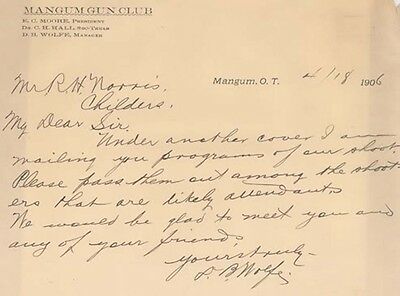 MANGUM GUN CLUB
E. C. MOORE, PRESIDENT
DR. C. H. HALL, SEC-TREAS
D. B. WOLFE, MANAGER
Mangum, O. T. 4/18 1906
Mr R. H. Norris,
Childers.
My Dear Sir.
Under another cover I am
mailing you programs of our shoot.
Please pass them out among the shoot-
ers that are likely attendants
We would be glad to meet you and
any of your friends
yours truly-
D. B. Wolfe.